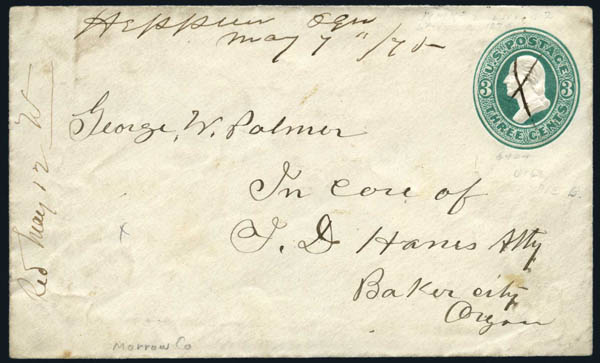 Heppner Ogn
May 7" /75
U.S. POSTAGE
3 3
THREE CENTS
George, W. Palmer
In care of
T. D Hanes Atty
Baker city
Oregon
Recd May 12
Morrow Co